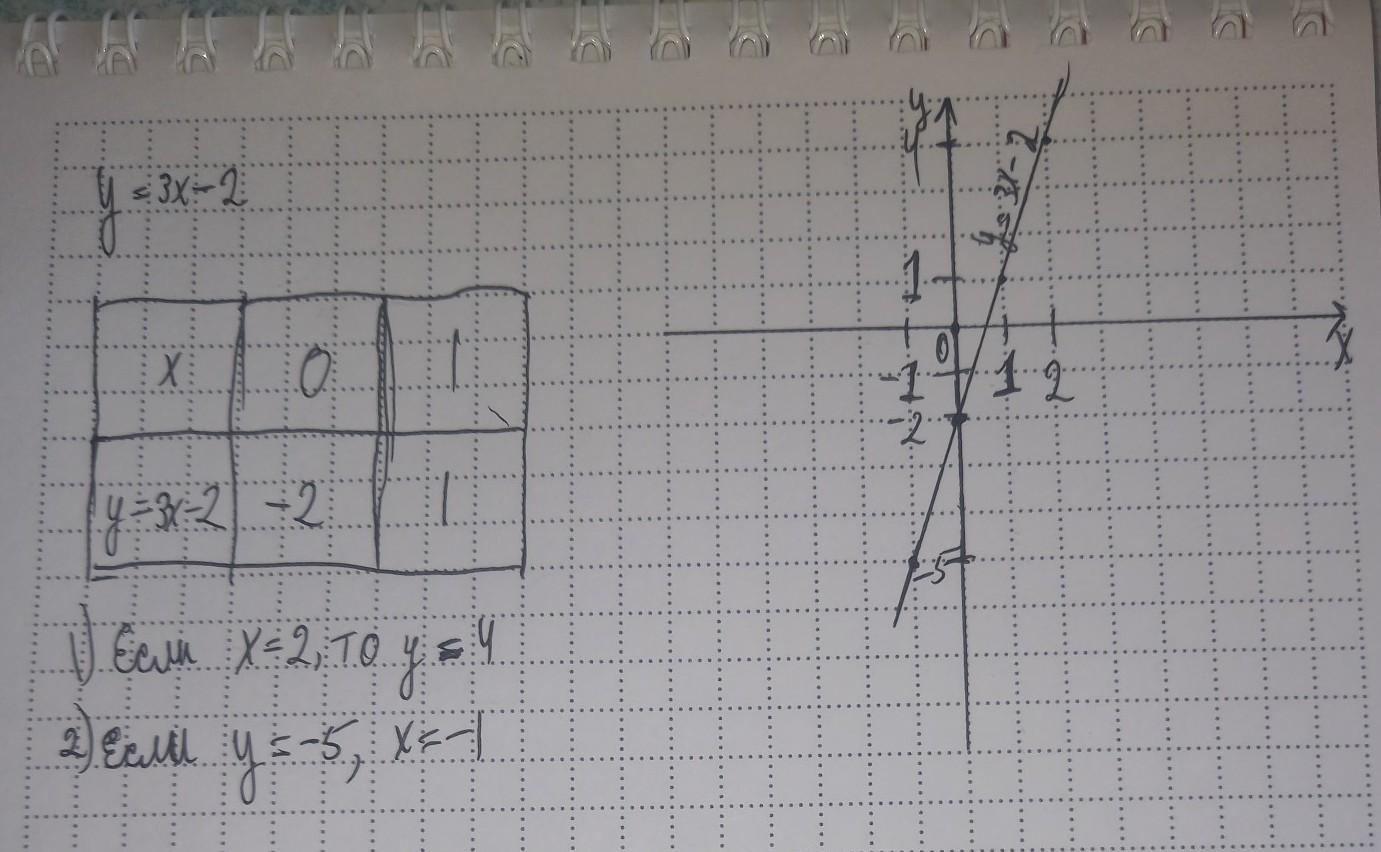 y = 3x - 2
x 0 1
y = 3x - 2 -2 1
1) Если x = 2, то y = 4
2) Если y = -5, x = -1
y
4
y = 3x - 2
1
0
-1 1 2
x
-2
-5